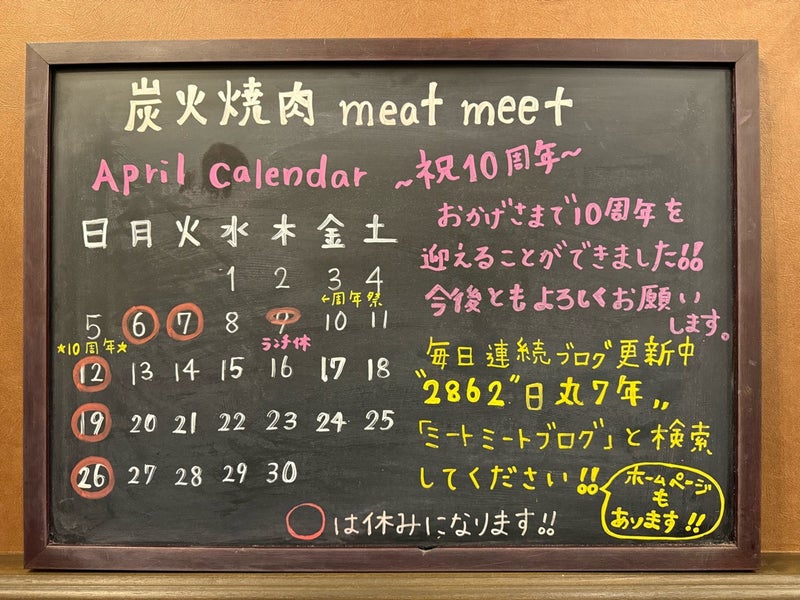 炭火焼肉 meat meet
April Calendar ~祝10周年~
日 月 火 水 木 金 土
1 2 3 4
←周年祭
5 6 7 8 9 10 11
★10周年★
ランチ休
12 13 14 15 16 17 18
19 20 21 22 23 24 25
26 27 28 29 30
おかげさまで10周年を
迎えることができました!!
今後ともよろしくお願い
します。
毎日連続ブログ更新中
"2862"日丸7年,,
「ミートミートブログ」と検索
してください!!
ホームページ
も
あります!!
○は休みになります!!